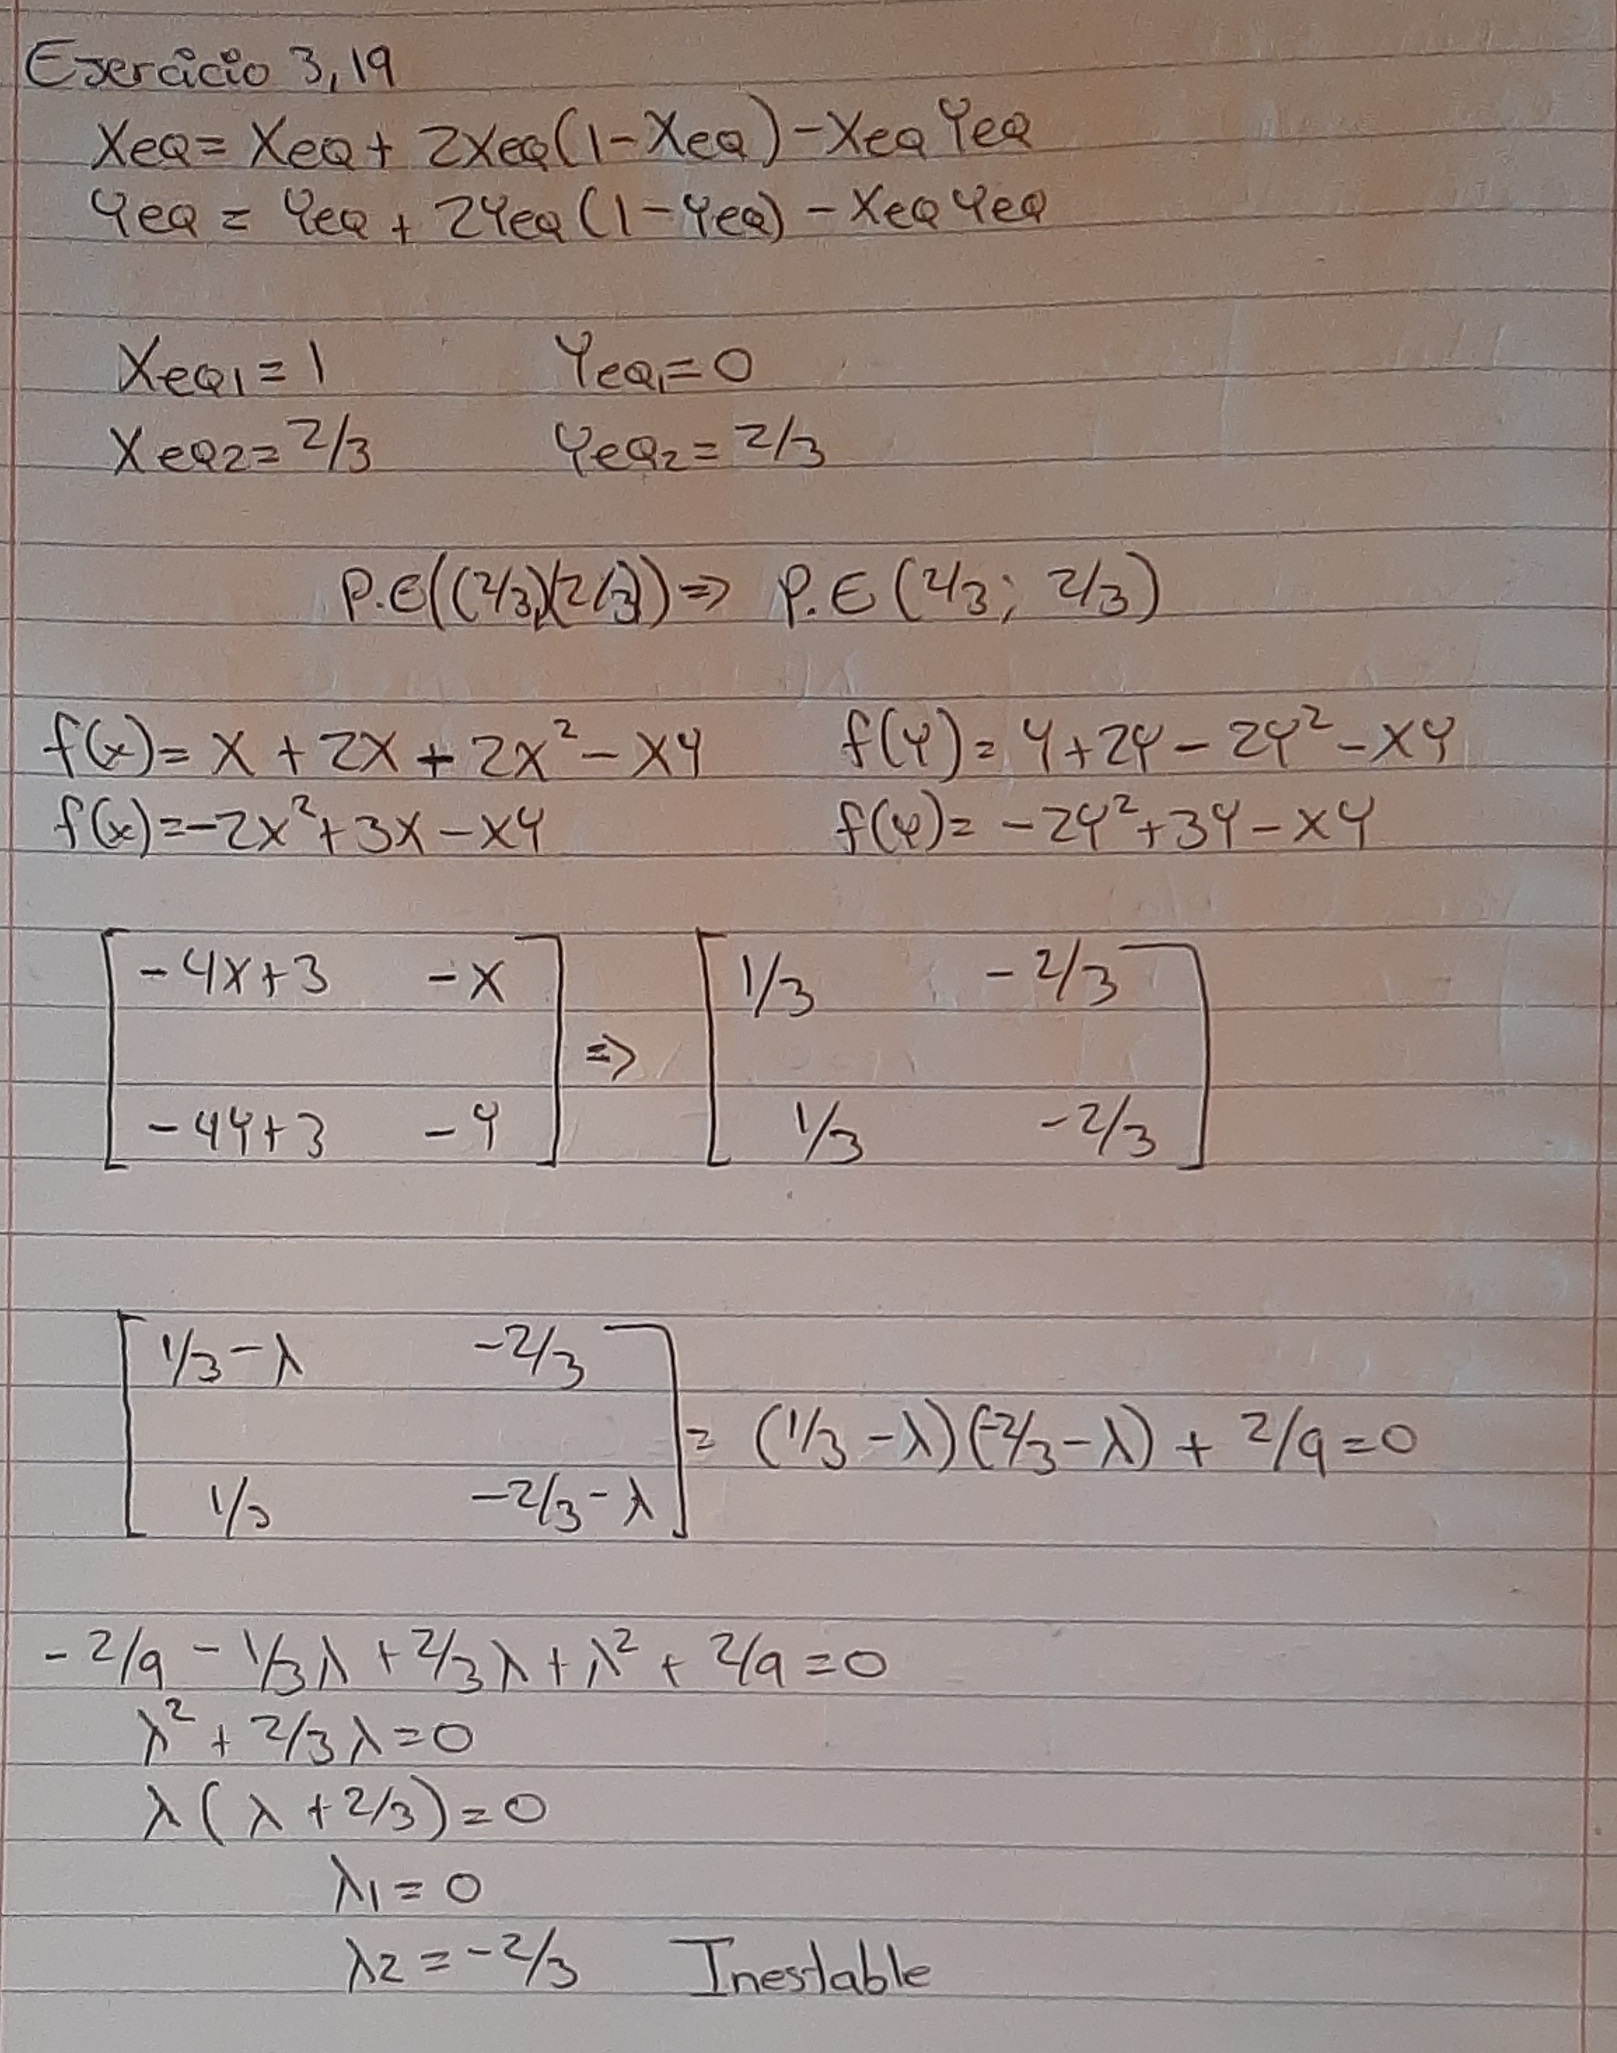 Ejercicio 3,19
Xeq = Xeq + 2Xeq(1-Xeq) - Xeq Yeq
Yeq = Yeq + 2Yeq(1-Yeq) - Xeq Yeq
Xeq1 = 1 Yeq1 = 0
Xeq2 = 2/3 Yeq2 = 2/3
P.E((2/3)(2/3)) => P.E (2/3; 2/3)
f(x) = x + 2x + 2x² - xy f(y) = y + 2y - 2y² - xy
f(x) = -2x² + 3x - xy f(y) = -2y² + 3y - xy
[-4x+3 -x] => [1/3 -2/3]
[-4y+3 -y] [1/3 -2/3]
[1/3-λ -2/3] = (1/3-λ)(-2/3-λ) + 2/9 = 0
[1/3 -2/3-λ]
-2/9 - 1/3λ + 2/3λ + λ² + 2/9 = 0
λ² + 2/3λ = 0
λ(λ + 2/3) = 0
λ1 = 0
λ2 = -2/3 Inestable